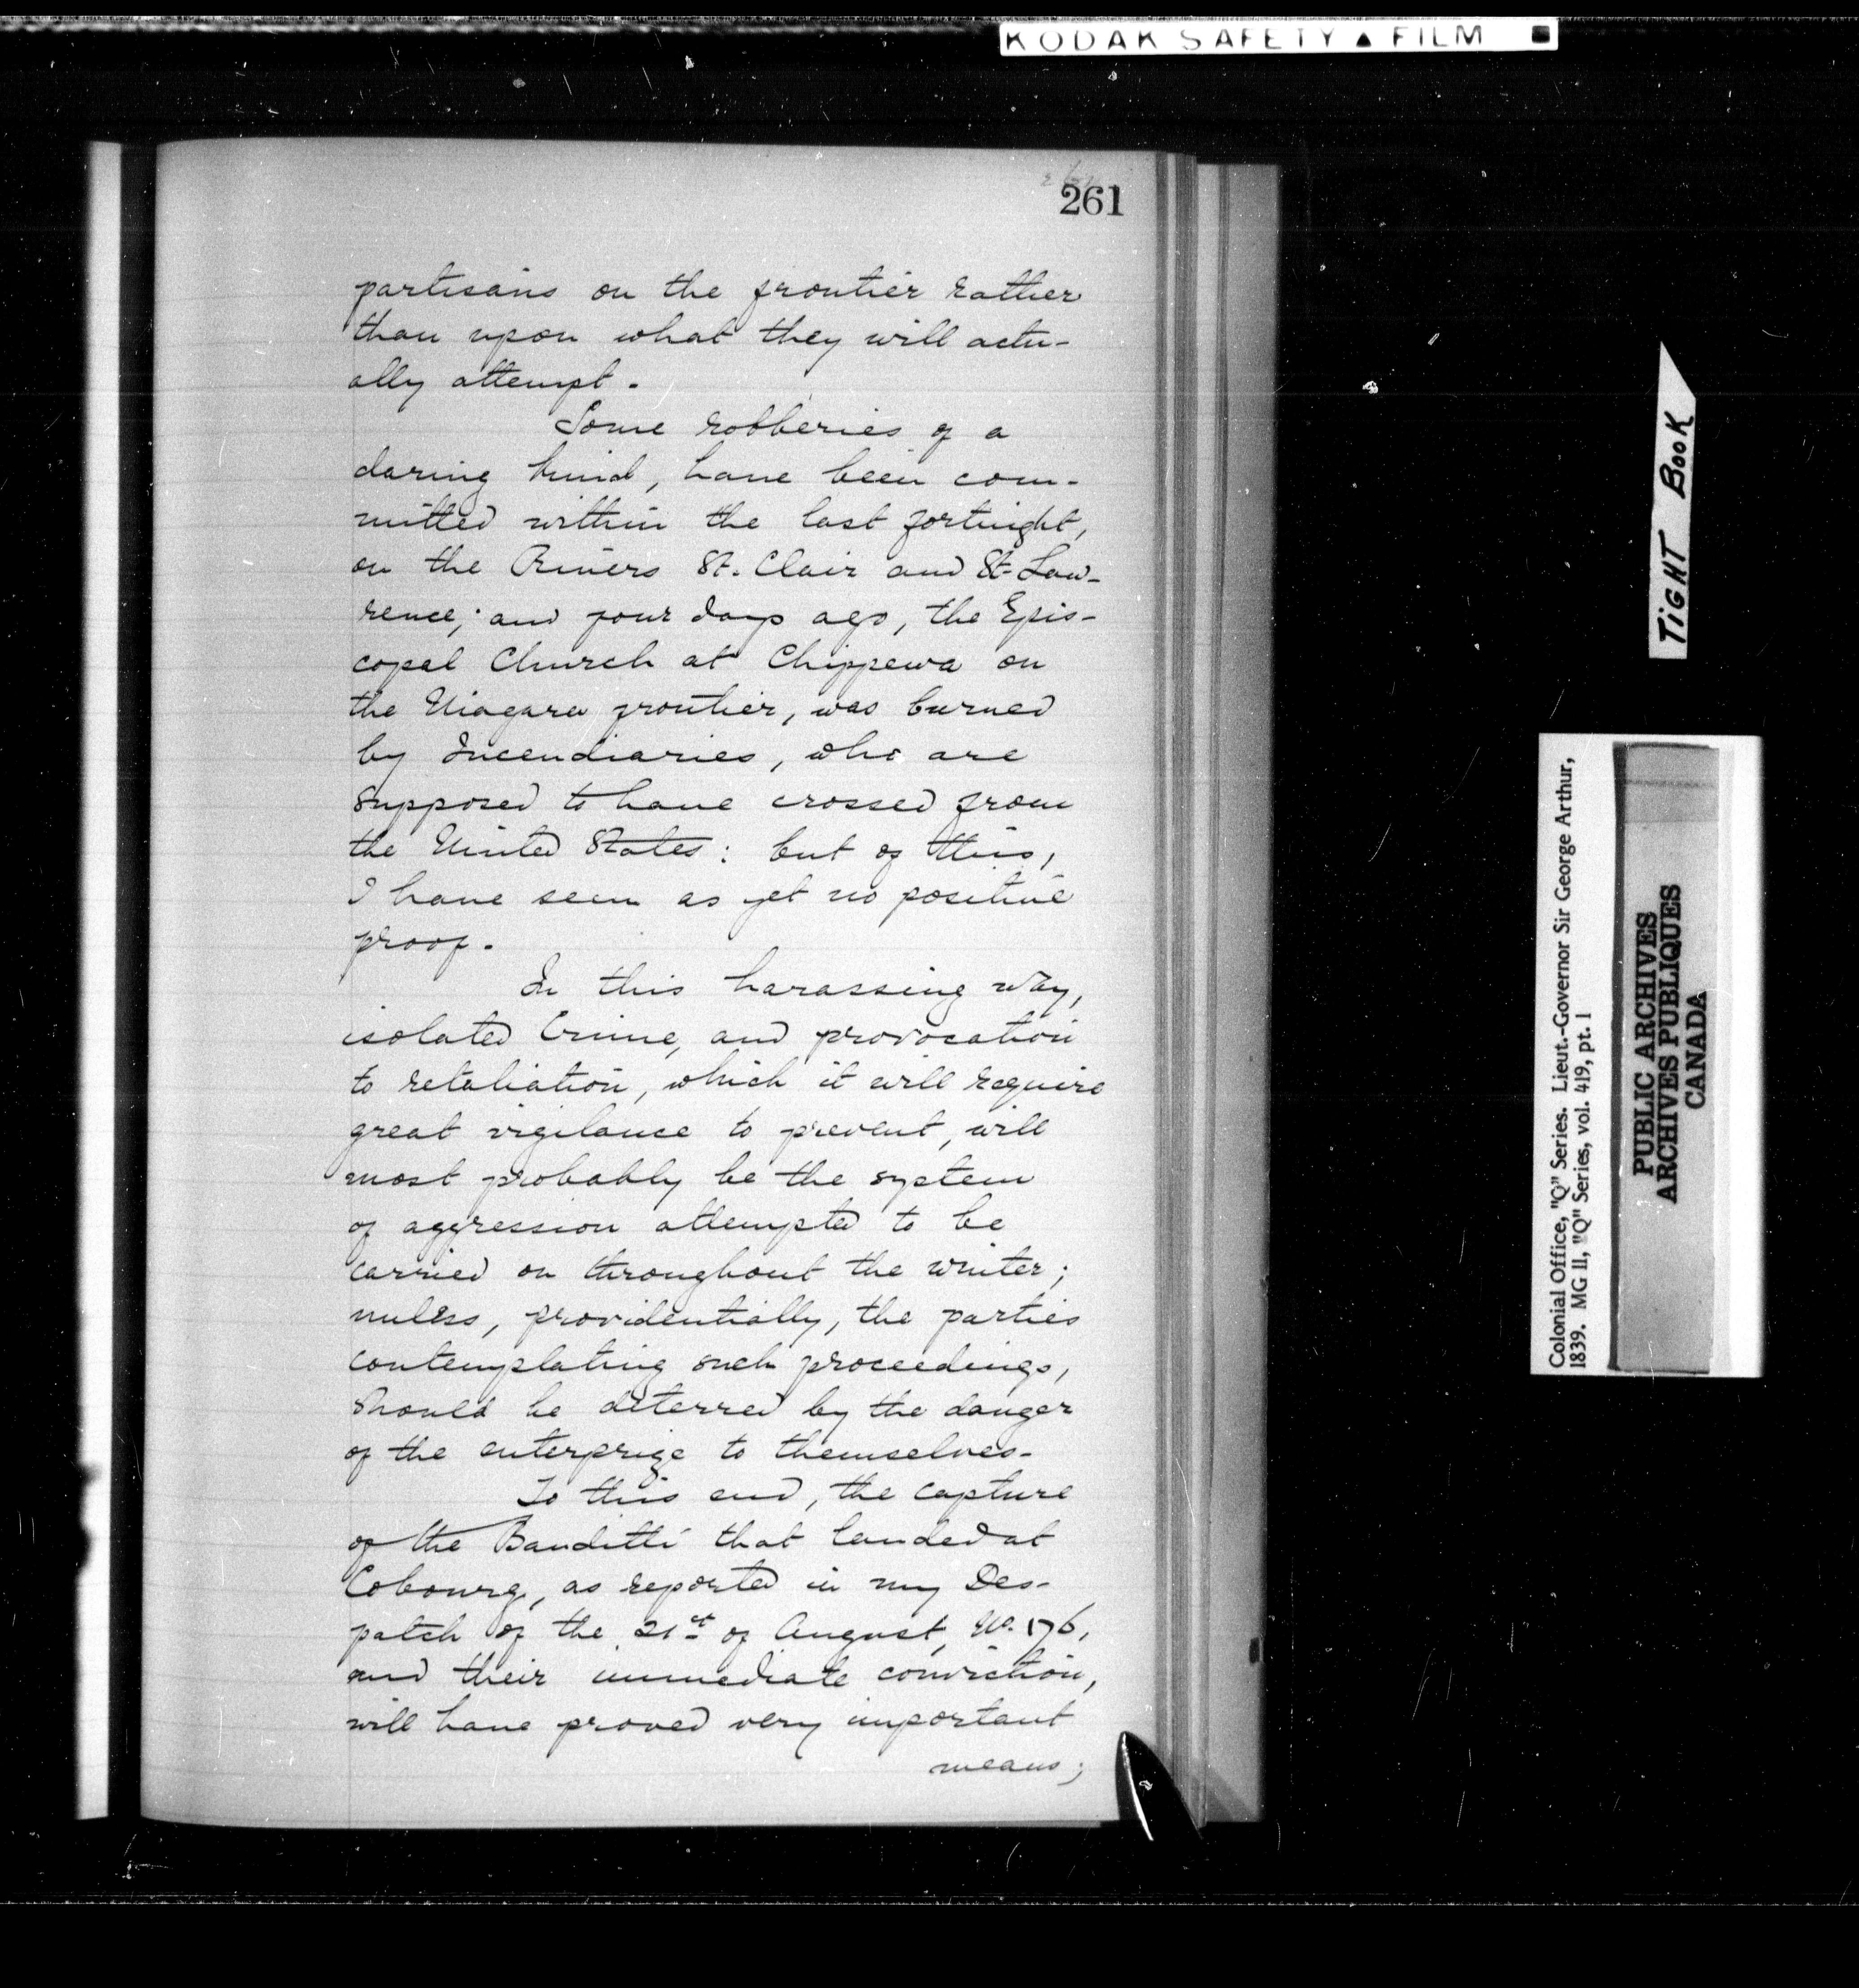 KODAK SAFETY ▲ FILM
261
partisans on the frontier rather
than upon what they will actu-
ally attempt.
Some robberies of a
daring kind, have been com-
mitted within the last fortnight,
on the Rivers St. Clair and St. Law-
rence; and four days ago, the Epis-
copal Church at Chippewa on
the Niagara frontier, was burned
by Incendiaries, who are
supposed to have crossed from
the United States: but of this,
I have seen as yet no positive
proof.
In this harassing way,
isolated Crime, and provocation
to retaliation, which it will require
great vigilance to prevent, will
most probably be the system
of aggression attempted to be
carried on throughout the winter;
unless, providentially, the parties
contemplating such proceedings,
should be deterred by the danger
of the enterprize to themselves.
To this end, the capture
of the Banditti that landed at
Cobourg, as reported in my Des-
patch of the 21st of August, No. 176,
and their immediate conviction,
will have proved very important
means;
TIGHT BOOK
Colonial Office, "Q" Series. Lieut.-Governor Sir George Arthur,
1839. MG 11, "Q" Series, vol. 419, pt. 1
PUBLIC ARCHIVES
ARCHIVES PUBLIQUES
CANADA